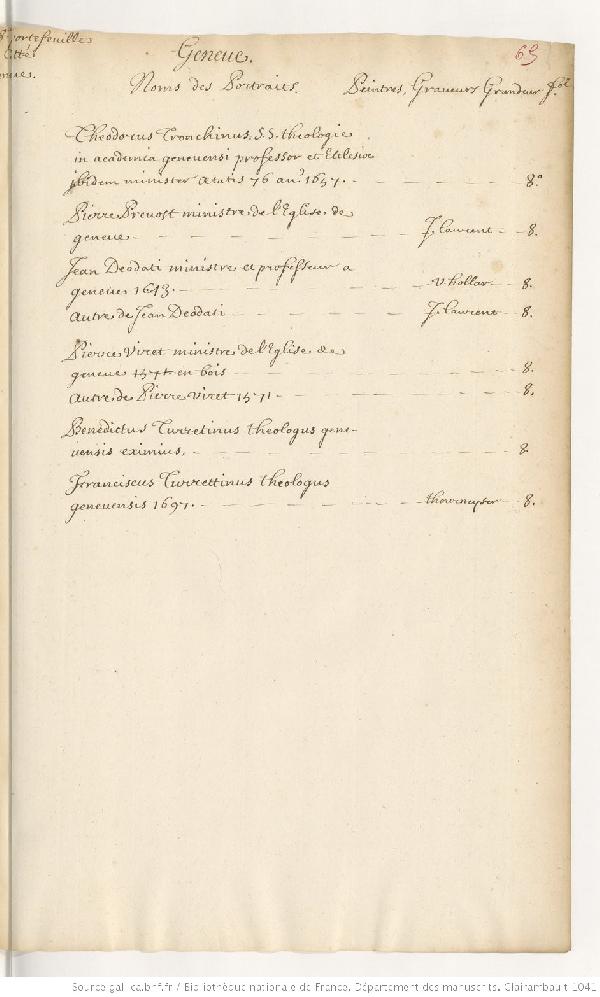 portefeuille
Geneue.
63
Noms des Portraits. Peintres, Graueurs Grandeur fol.
Theodorus Tronchinus. S.S. theologie
in academia geneuensi professor et Ecclesiæ
ibidem minister ætatis 76 an.° 1657. 8.°
Pierre Preuost ministre de l'Eglise de
geneue J. laurent 8.
Jean Deodati ministre et professeur a
geneue 1643. v. hollar 8.
autre de Jean Deodati J. laurent 8.
Pierre Viret ministre de l'Eglise de
geneue en bois 8.
autre de Pierre Viret 1571 8.
Benedictus Turretinus theologus gene-
uensis eximius. 8
Franciscus Turrettinus theologus
geneuensis 1697. thourneyser 8.
Source gallica.bnf.fr / Bibliothèque nationale de France. Département des manuscrits. Clairambault 1041